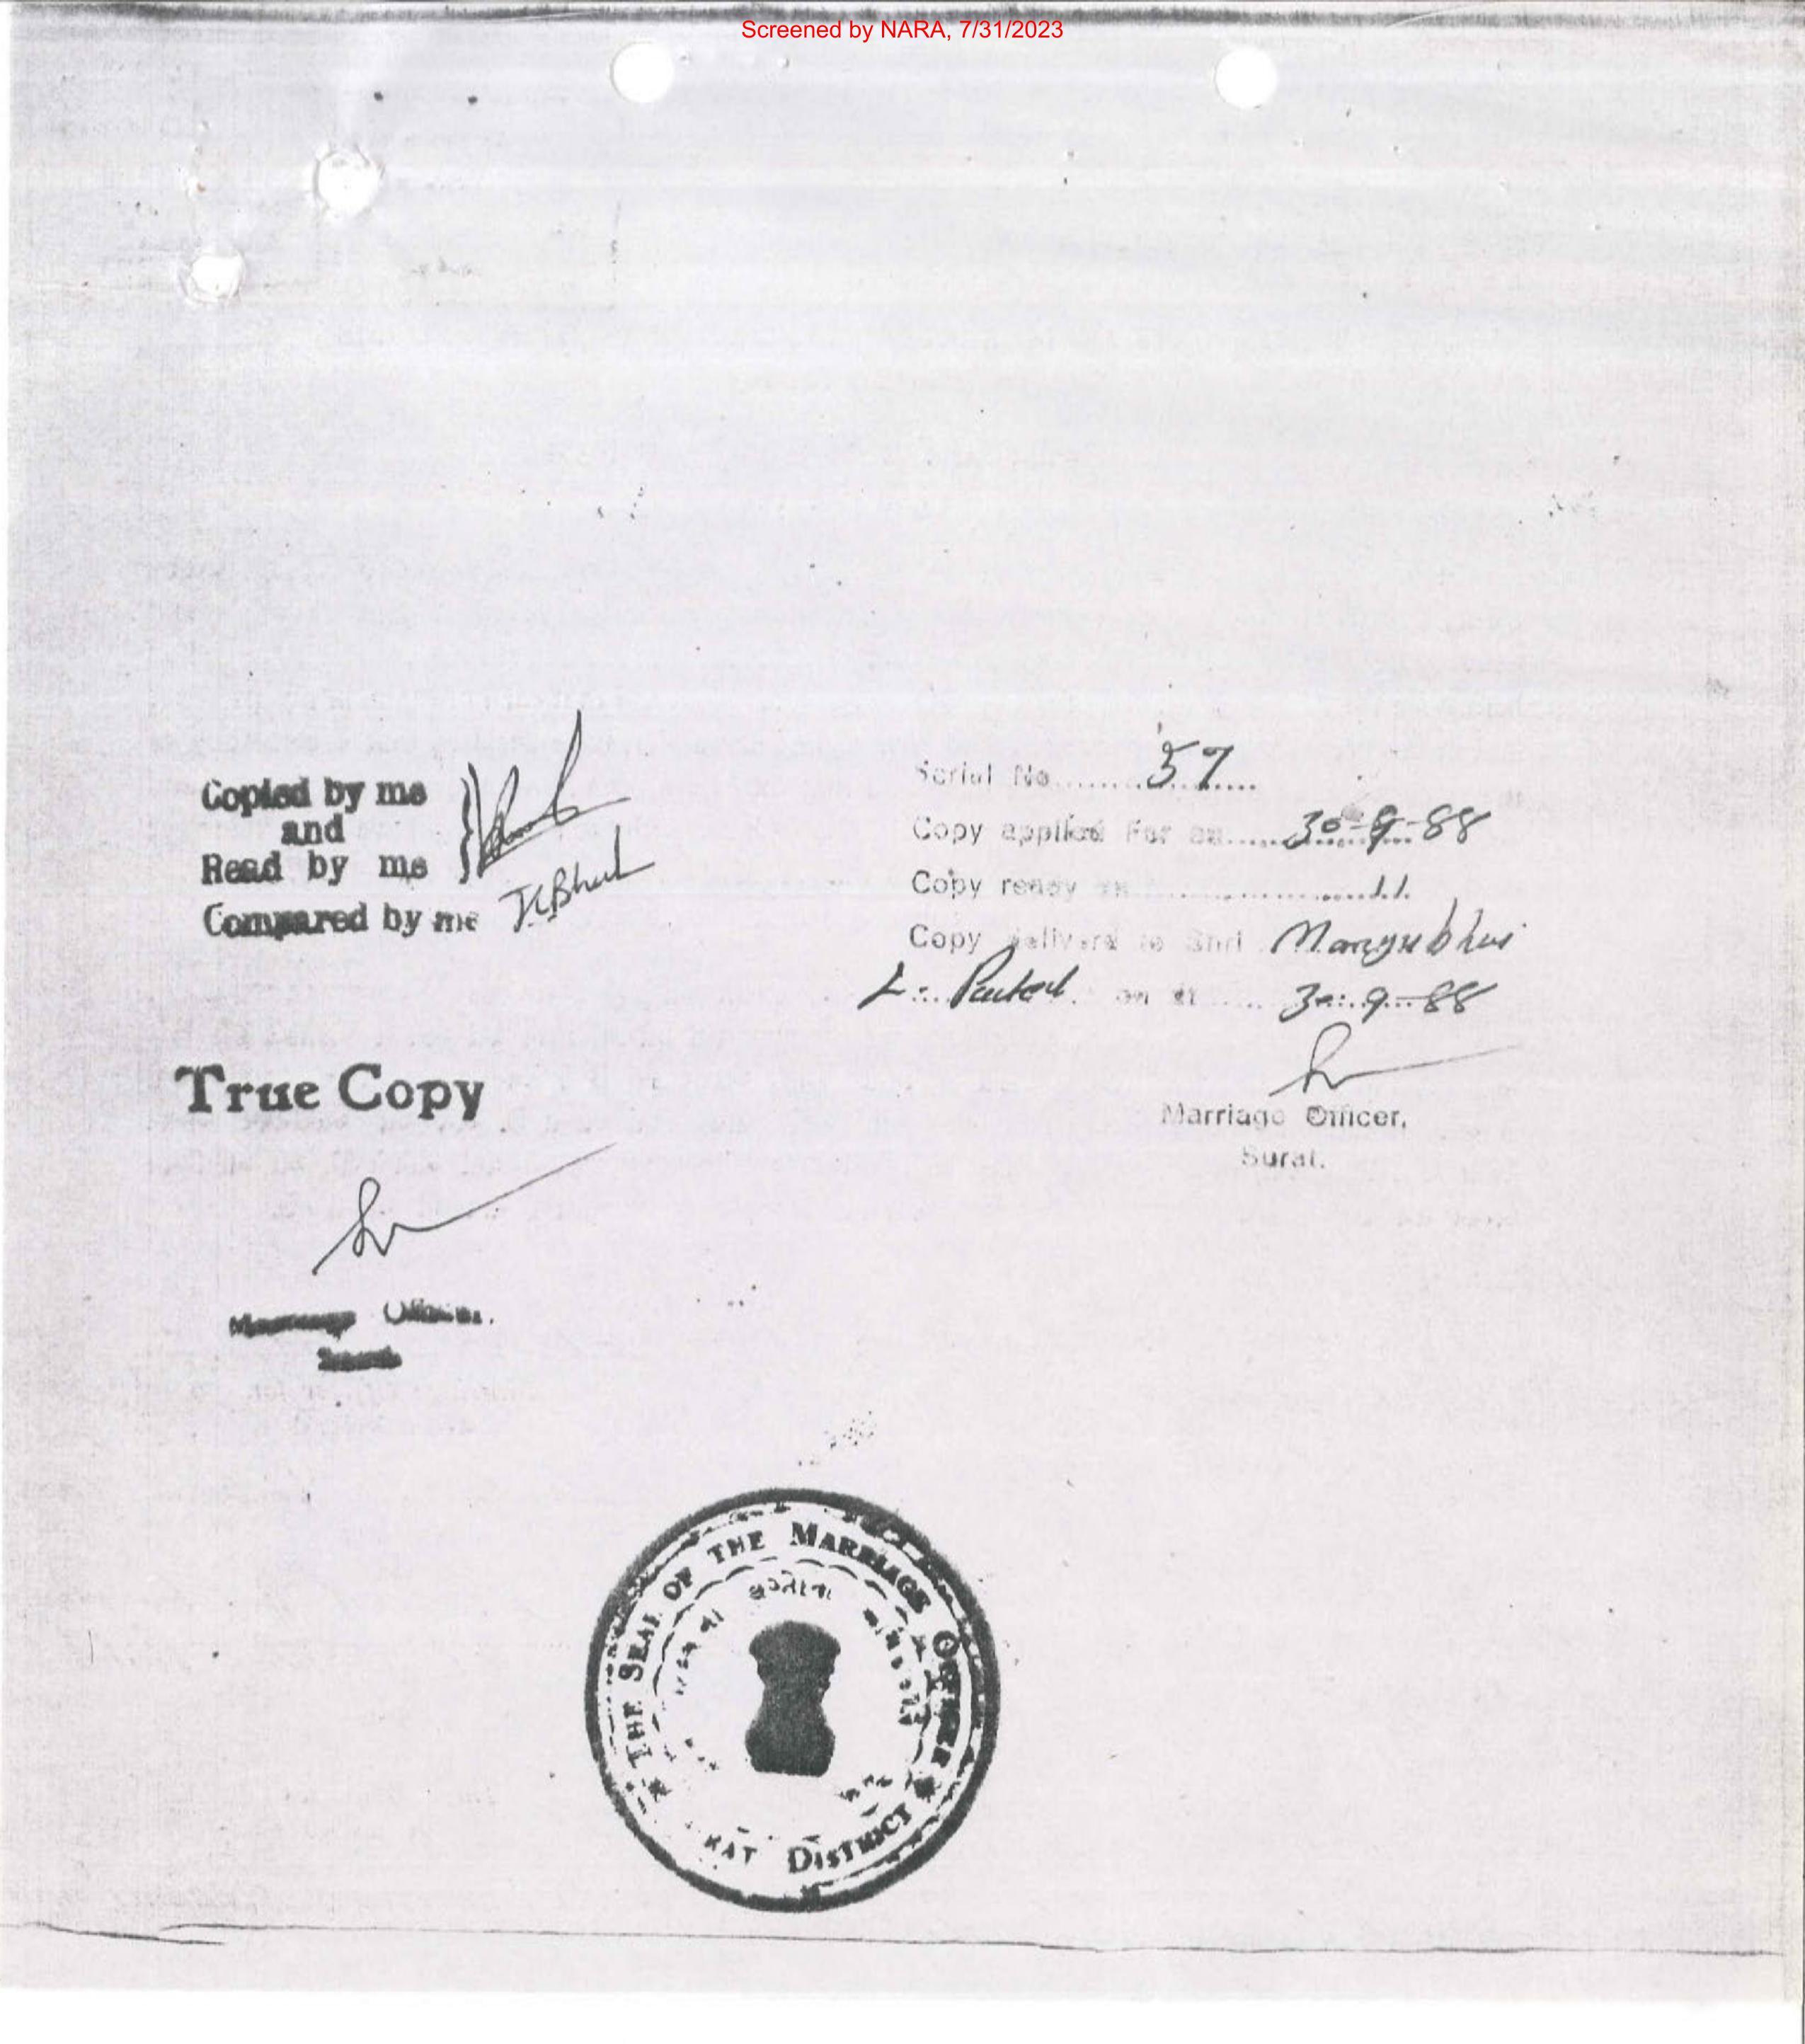 Screened by NARA, 7/31/2023
Copied by me
and
Read by me
Compared by me
Serial No. 37
Copy applied For on 30-9-88
Copy ready on
Copy delivered to Shri Mangubhai
L. Patel on 30-9-88
Marriage Officer,
Surat.
True Copy
Marriage Officer.
Surat
THE SEAL OF THE MARRIAGE OFFICER
DISTRICT